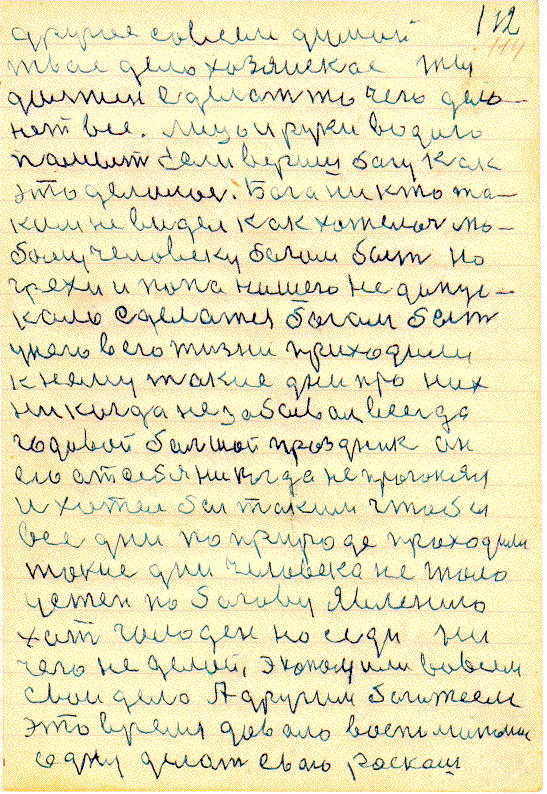 112
другое совсем думой
твое дело хозяиское ты
должен сделат то чего дело-
нет все. лицо и руки водило
помыт Если вериш богу как
это делиное. Бога никто та-
ким не видел как хотелос лю-
бому человеку богом быт но
грехи и попа нашего не допус-
кало сделатся богом быт
унего в его жизни приходили
к нему такие дни про них
никогда не забывал всегда
годовой болшой праздник он
его отсебя никогда не прогонял
и хотел был таким чтобы
все дни по природе проходили
такие дни человека не толо
устен по богову Явленило
хот голоден но седи ни
чего не делой, экономили вовсем
свои дело А другим богатеем
это время довало воспоминоние
одну делат свою роскош